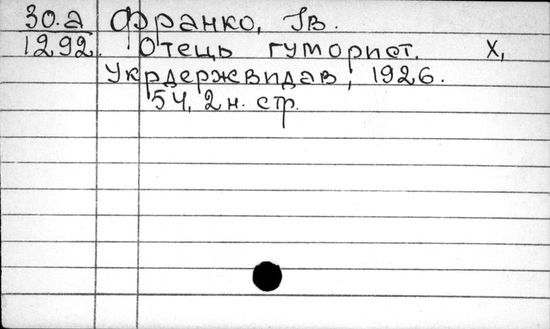 30.а Франко, Ів.
1292. Отець гуморист. Х,
Укрдержвидав, 1926.
54, 2 н. стр.